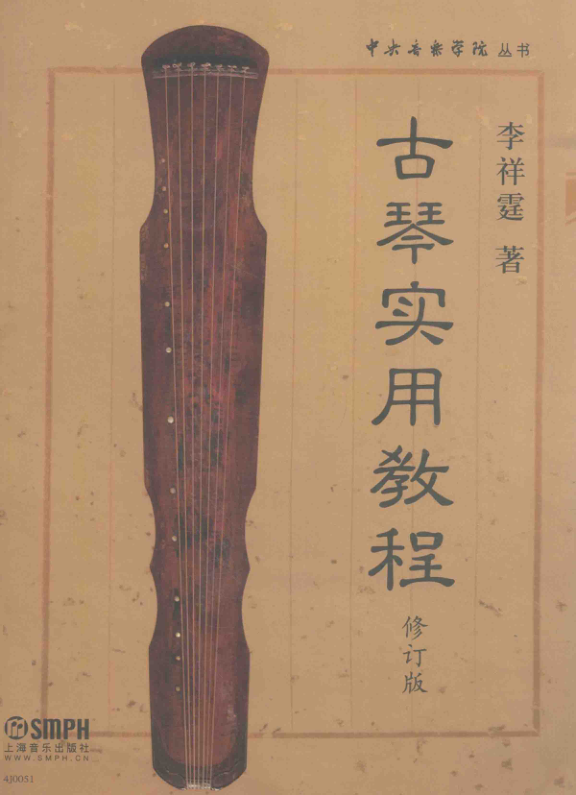 中央音乐学院 丛书
李祥霆 著
古琴实用教程
修订版
SMPH
上海音乐出版社
WWW.SMPH.CN
4J0051